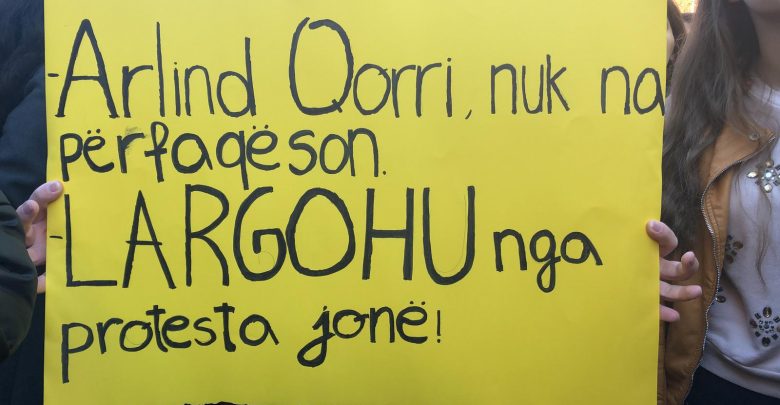 -Arlind Qorri, nuk na
përfaqëson.
-LARGOHU nga
protesta jonë!